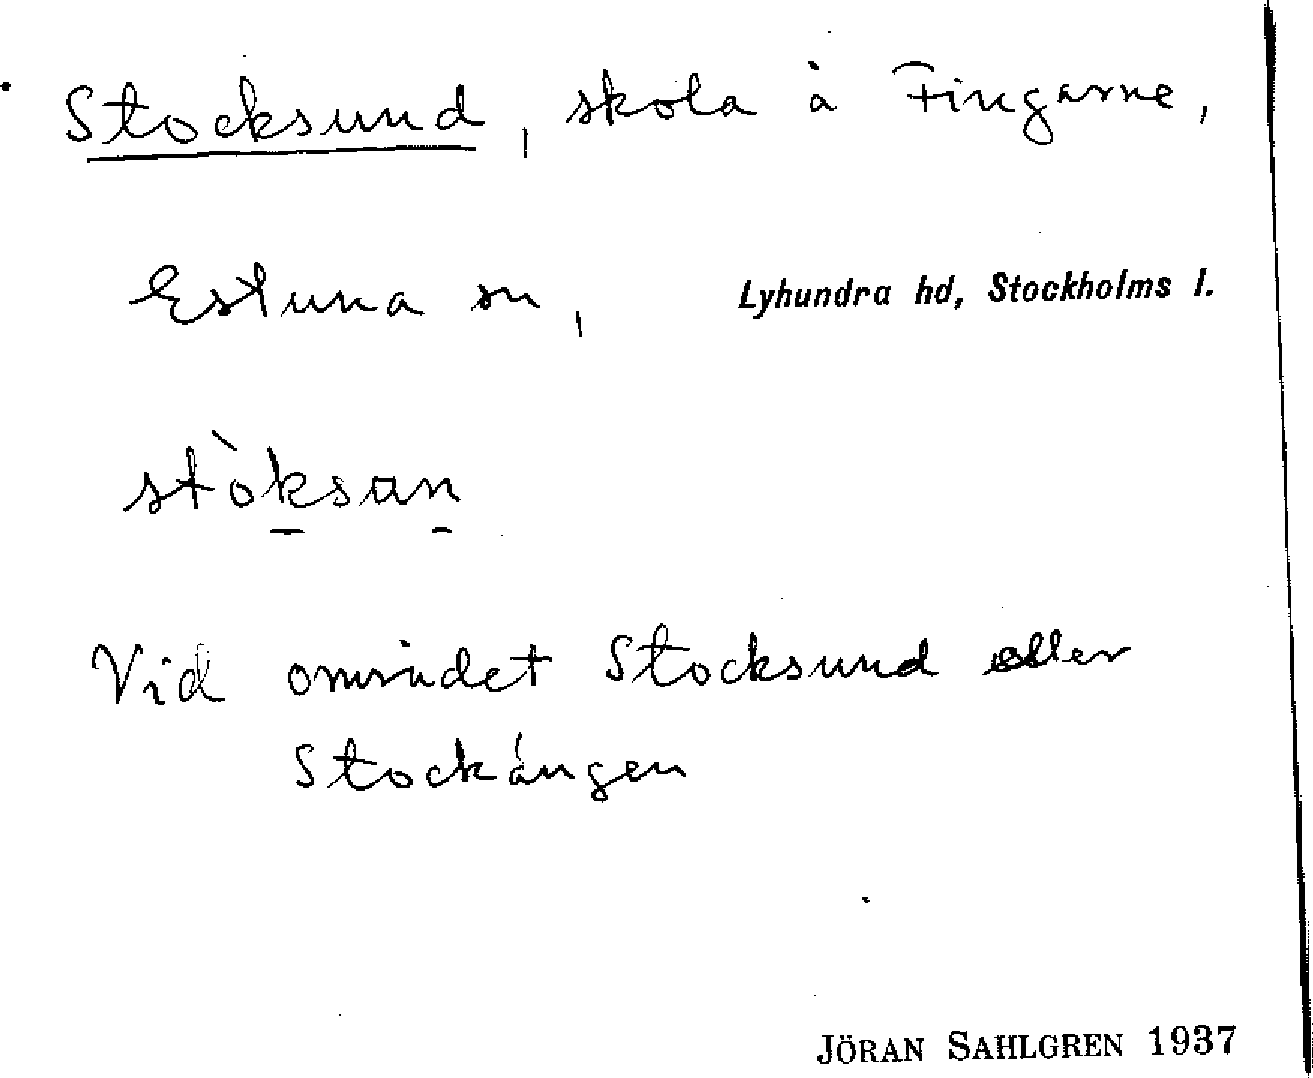 Stocksund, skola å Fingarne,
Estuna sn, Lyhundra hd, Stockholms l.
stòksan
Vid området Stocksund eller
Stockängen
JÖRAN SAHLGREN 1937